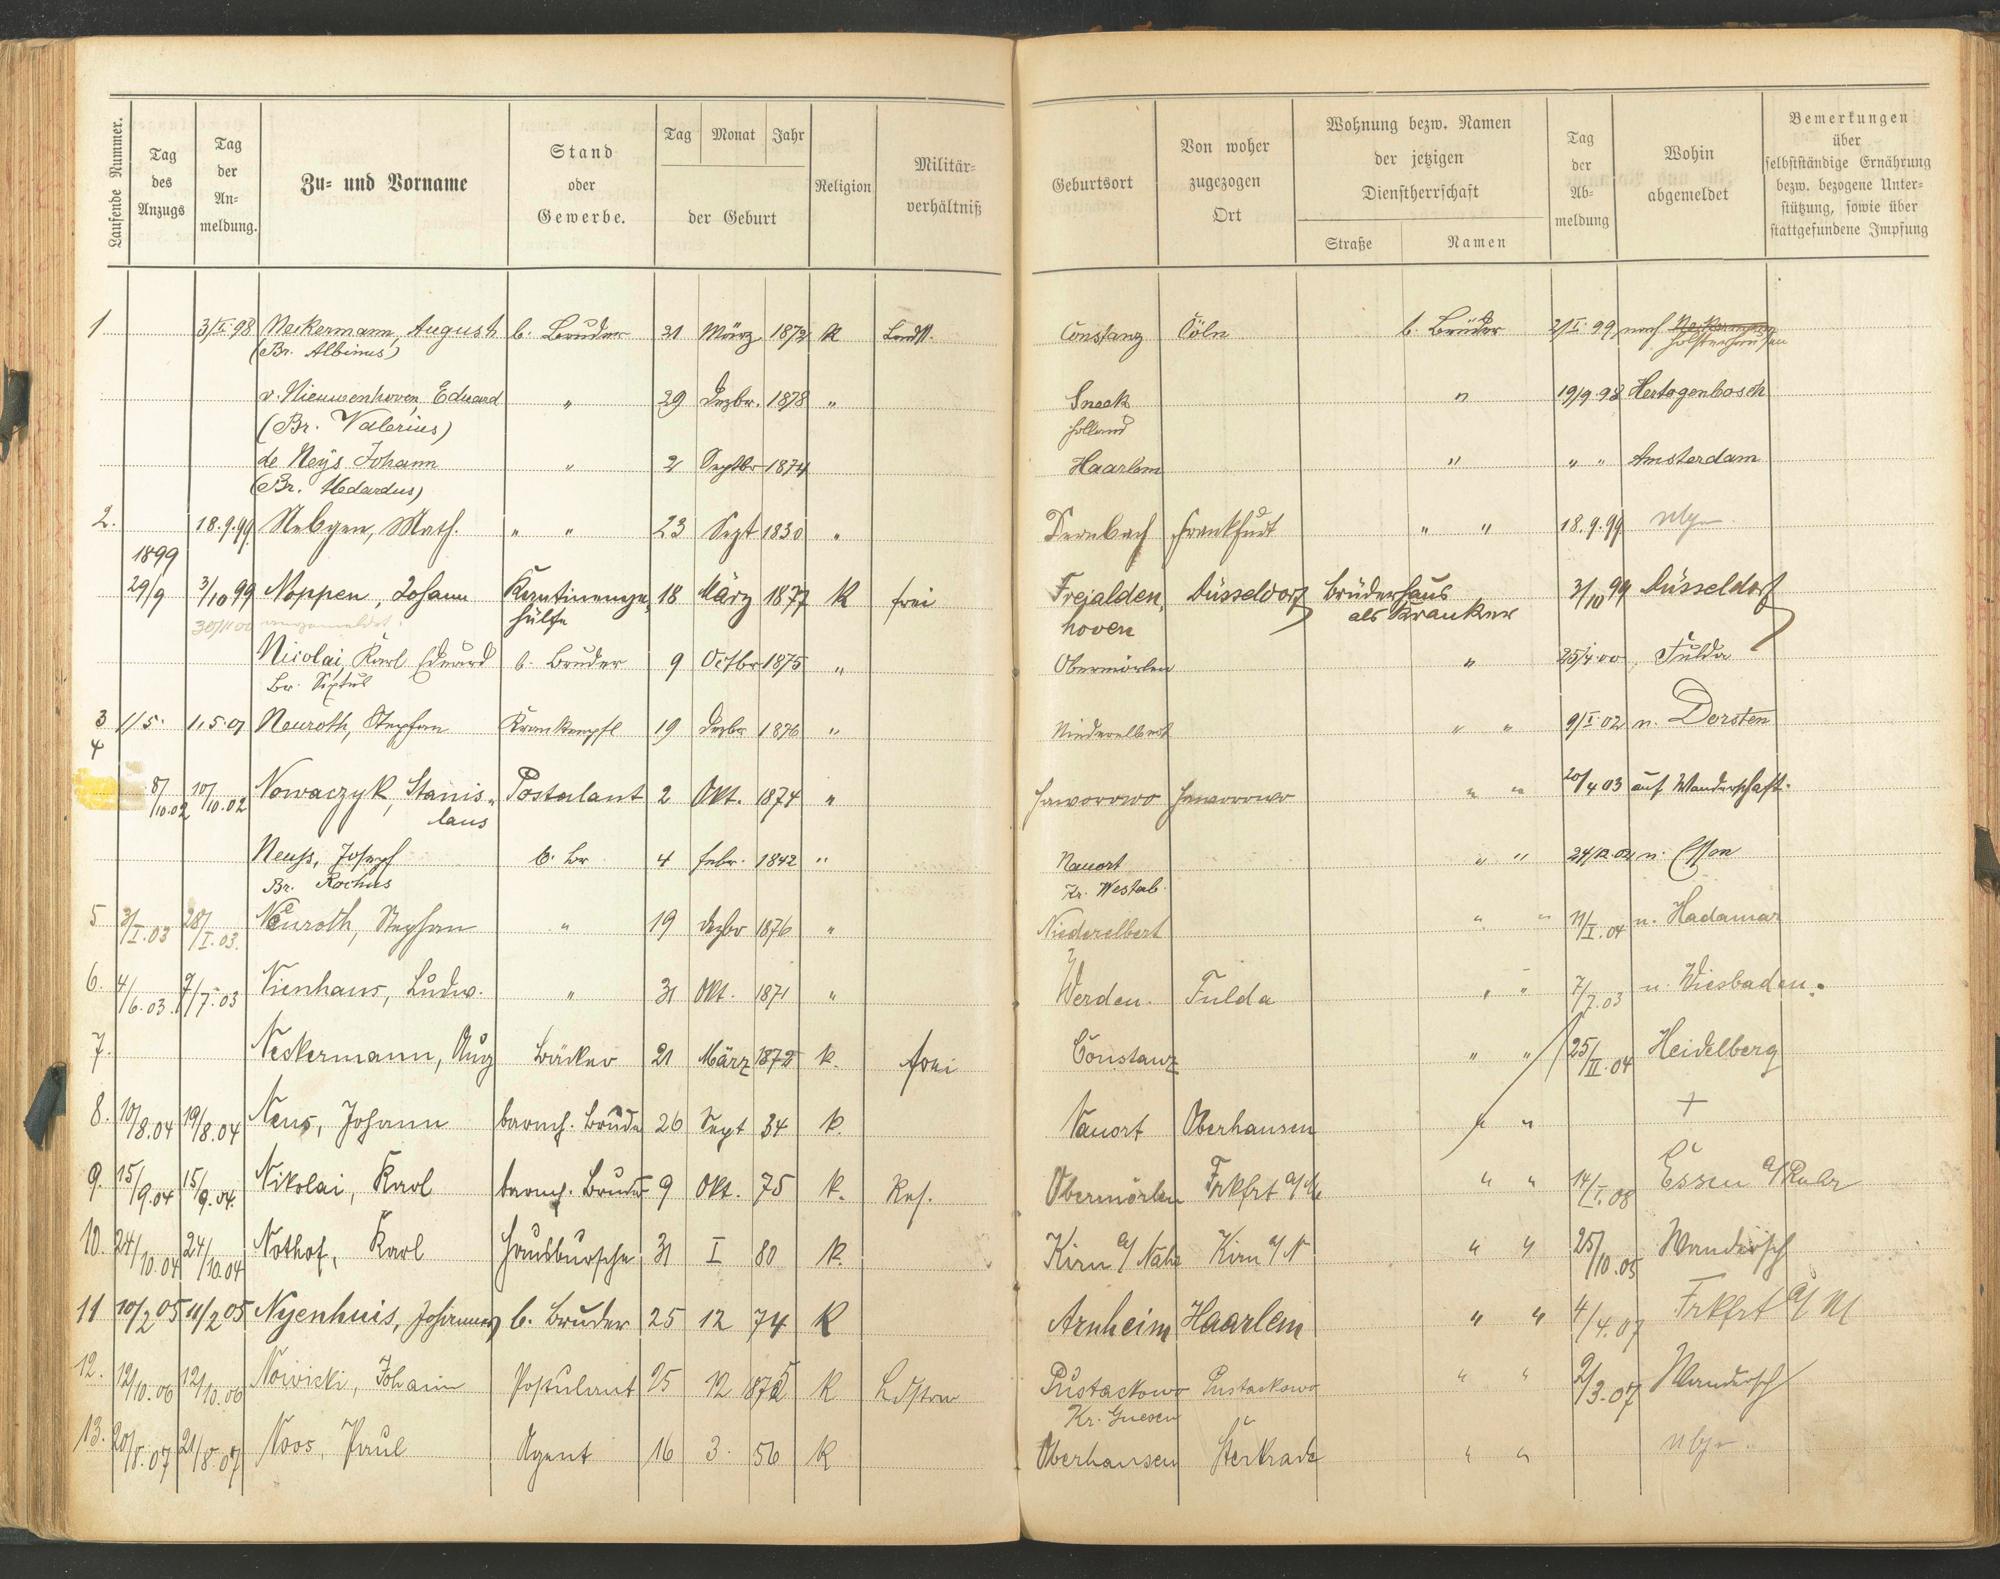 Laufende Nummer.
Tag des Anzugs
Tag der An-meldung.
Zu- und Vorname
Stand oder Gewerbe.
Tag Monat Jahr
der Geburt
Religion
Militär-verhältniß
Geburtsort
Von woher zugezogen Ort
Wohnung bezw. Namen der jetzigen Dienstherrschaft
Straße Namen
Tag der Ab-meldung
Wohin abgemeldet
Bemerkungen über selbstständige Ernährung bezw. bezogene Unter-stützung, sowie über stattgefundene Impfung
1 3/I.98 Neckermann, August b. Bruder 21 März 1872 K Constanz Cöln b. Brüder 2/I 99 nach Holsterhausen
(Br. Albinus)
v. Nieuwenhoven, Eduard " 29 Dezbr. 1878 " Sneek " 19/9.98 Hertogenbosch
(Br. Valerius) Holland
de Neÿs Johann " 2 Septbr 1874 Haarlem " " " Amsterdam
(Br. Medardus)
2. 18.9.99. Nebgen, Math. " " 23 Sept 1830 " Dernbach Frankfurt " " 18.9.99.
1899
29/9 3/10 99 Noppen, Johann Kantinenge- 18 März 1877 K frei Frejalden, Düsseldorf Brüderhaus 3/10 99 Düsseldorf
hülfe hoven als Kranker
30/11 00
Nicolai, Karl Eduard b. Bruder 9 Octbr 1875 " Obermörlen " 25/4.00 Fulda
3 1/5. 1.5.01 Neuroth, Stephan Krankenpfl 19 Dezbr 1876 " Niederelbert " " 9/I 02 n. Dorsten
4
8/10.02 10/10.02 Nowaczyk, Stanis- Postulant 2 Okt. 1874 " Jaworowo Jaworowo " " 20/4 03 auf Wanderschaft.
laus
Neuß, Joseph b. Br 4 Febr. 1842 " Nauort " " 24/12.02 n. Essen
Br. Rochus Kr. Westerb.
5 3/I.03 28/I.03. Neuroth, Stephan " 19 Dezbr 1876 " Niederelbert " " 11/I.04 n. Hadamar
6. 4/6.03 7/7.03 Nienhaus, Ludw. " 31 Okt. 1871 " Werden. Fulda " " 7/7.03 n. Wiesbaden.
7. Neckermann, Aug Bäcker 21 März 1872 k. frei Constanz " " 25/II.04 Heidelberg
8. 10/8.04 19/8.04 Neus, Johann barmh. Bruder 26 Sept 34 k. Nauort Oberhausen " " +
9. 15/9.04 15/9.04. Nikolai, Karl barmh. Bruder 9 Okt. 75 k. Res. Obermörlen Frkfrt a/M " " 14/I.08 Essen a/Ruhr
10. 24/10.04 24/10.04 Nothof, Karl Hausbursche 31 I 80 k. Kirn a/Nahe Kirn a/N " " 25/10.05 Wandersch
11 10/2 05 11/2 05 Nyenhuis, Johannes b. Bruder 25 12 74 K Arnheim Haarlem " " 4/4.07 Frkfrt a/M
12. 12/10.06 12/10.06 Nowicki, Johann Postulant 25 12 1875 K Ldstrm Pustackowo Pustackowo " " 2/3.07 Wandersch
Kr. Gnesen
13. 20/8.07 21/8.07 Noos, Paul Agent 16 3. 56 K Oberhausen Sterkrade " "